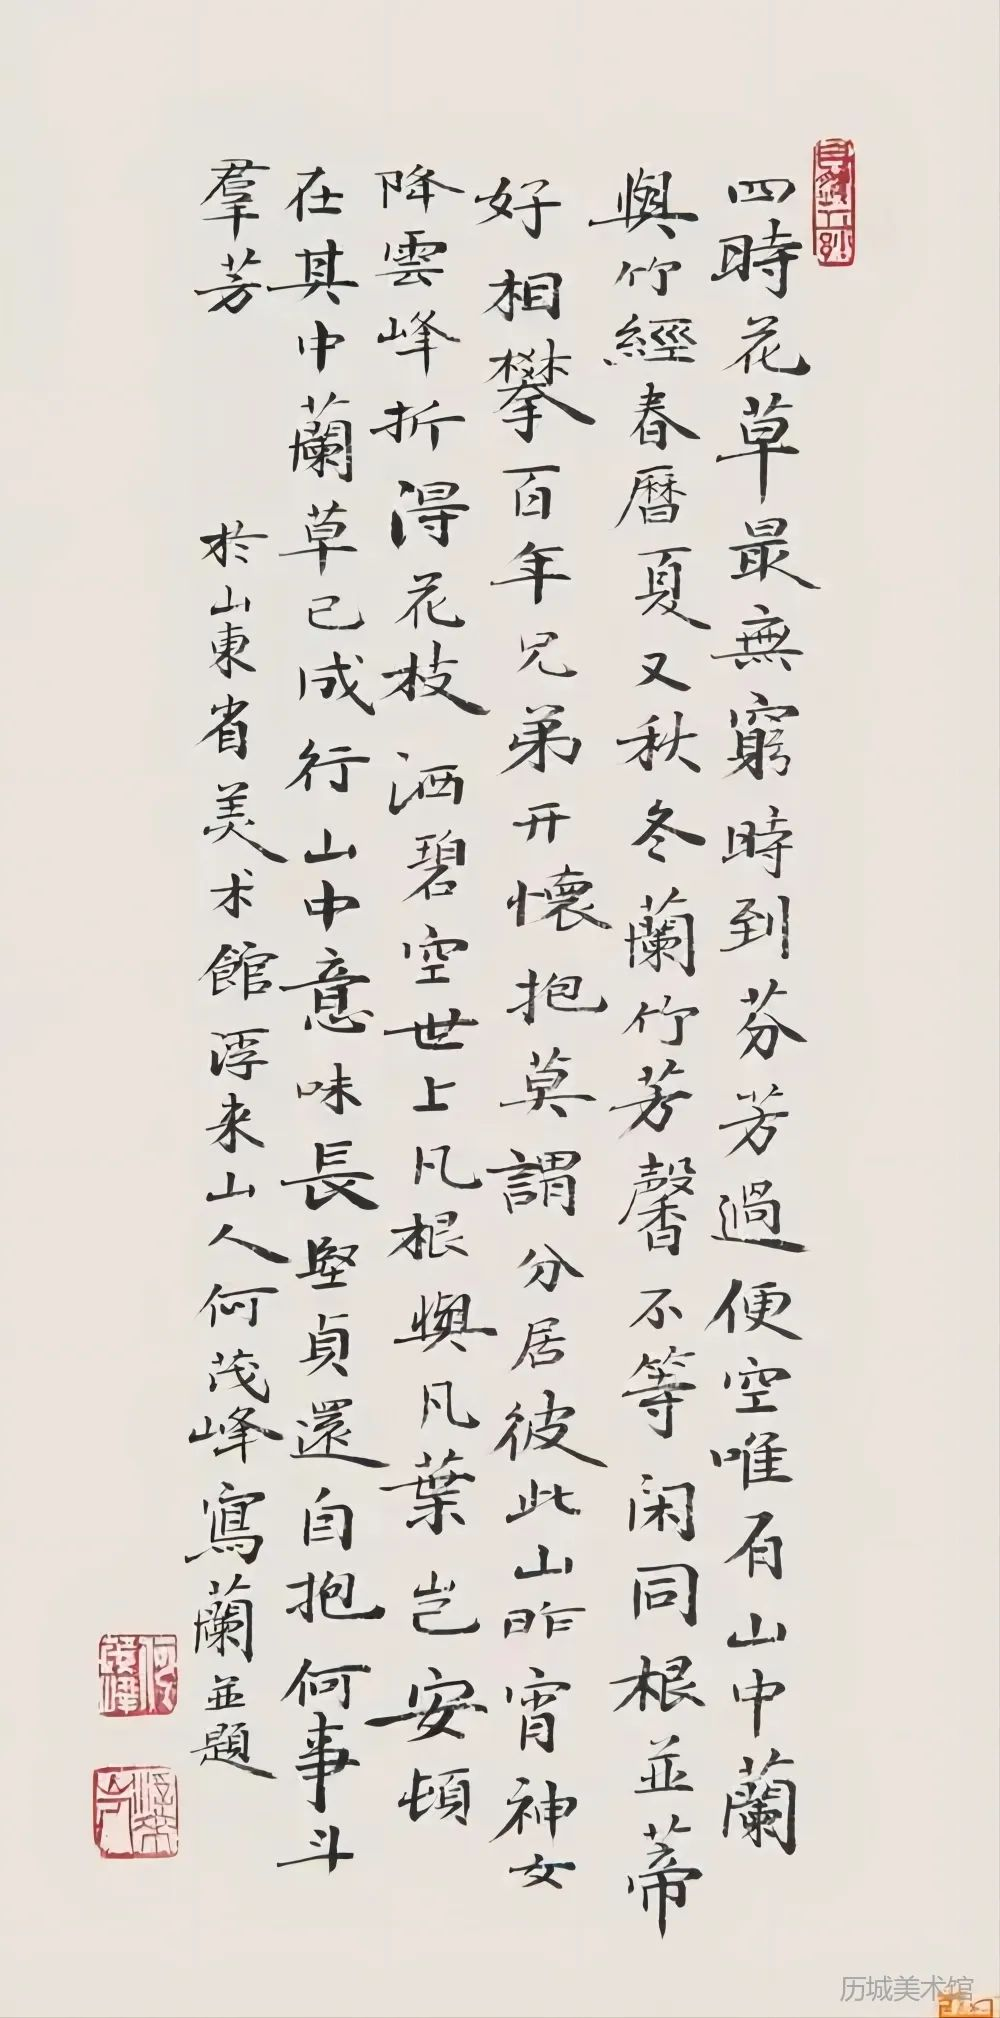 四時花草最無窮時到芬芳過便空唯有山中蘭
與竹經春曆夏又秋冬蘭竹芳馨不等閑同根並蒂
好相攀百年兄弟开懷抱莫謂分居彼此山昨宵神女
降雲峰折得花枝洒碧空世上凡根與凡葉岂安頓
在其中蘭草已成行山中意味長堅貞還自抱何事斗
羣芳
於山東省美术館浮来山人何茂峰寫蘭並題
何茂峰
历城美术馆